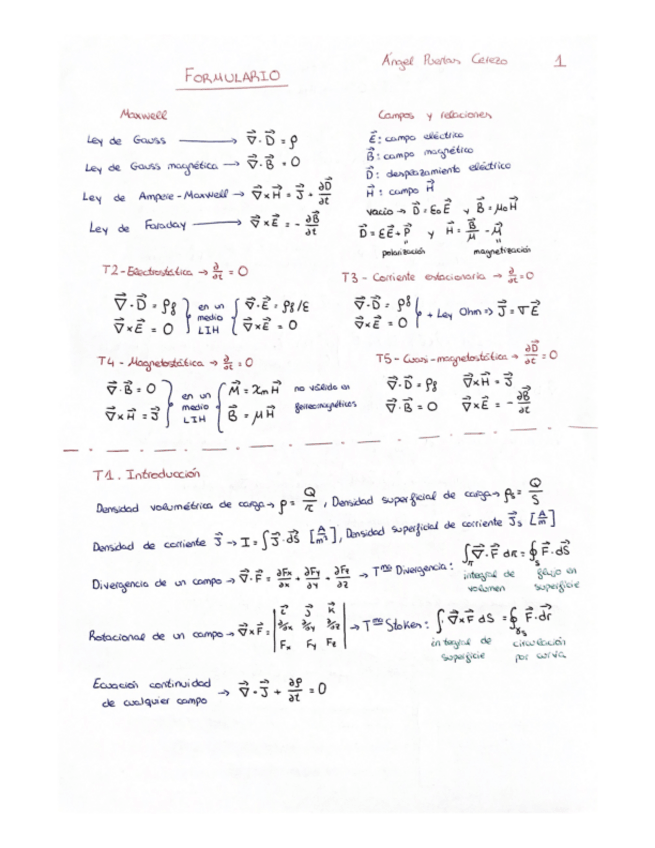 Ángel Puertas Cerezo 1
FORMULARIO
Maxwell
Ley de Gauss → ∇⃗·D⃗ = ρ
Ley de Gauss magnética → ∇⃗·B⃗ = 0
Ley de Ampere-Maxwell → ∇⃗×H⃗ = J⃗ + ∂D⃗/∂t
Ley de Faraday → ∇⃗×E⃗ = - ∂B⃗/∂t
Campos y relaciones
E⃗: campo eléctrico
B⃗: campo magnético
D⃗: desplazamiento eléctrico
H⃗: campo H⃗
vacío → D⃗ = ε₀E⃗ y B⃗ = μ₀H⃗
D⃗ = εE⃗ + P⃗ y H⃗ = B⃗/μ - M⃗
polarización magnetización
T2 - Electrostática → ∂/∂t = 0
∇⃗·D⃗ = ρf } en un medio LIH { ∇⃗·E⃗ = ρf/ε
∇⃗×E⃗ = 0 } { ∇⃗×E⃗ = 0
T3 - Corriente estacionaria → ∂/∂t = 0
∇⃗·D⃗ = ρf } + Ley Ohm ⇒ J⃗ = σE⃗
∇⃗×E⃗ = 0
T4 - Magnetostática → ∂/∂t = 0
∇⃗·B⃗ = 0 } en un medio LIH { M⃗ = χmH⃗ no válido en
∇⃗×H⃗ = J⃗ } { B⃗ = μH⃗ ferromagnéticos
T5 - Cuasi-magnetostática → ∂D⃗/∂t = 0
∇⃗·D⃗ = ρf ∇⃗×H⃗ = J⃗
∇⃗·B⃗ = 0 ∇⃗×E⃗ = - ∂B⃗/∂t
T1. Introducción
Densidad volumétrica de carga → ρ = Q/τ, Densidad superficial de carga → ρs = Q/S
Densidad de corriente J⃗ → I = ∫ J⃗·dS⃗ [A/m²], Densidad superficial de corriente J⃗s [A/m]
Divergencia de un campo → ∇⃗·F⃗ = ∂Fx/∂x + ∂Fy/∂y + ∂Fz/∂z → Tma Divergencia: ∫τ ∇⃗·F⃗ dτ = ∮S F⃗·dS⃗
integral de volumen flujo en superficie
Rotacional de un campo → ∇⃗×F⃗ = | i⃗ j⃗ k⃗ |
| ∂/∂x ∂/∂y ∂/∂z |
| Fx Fy Fz | → Tma Stokes: ∫S ∇⃗×F⃗ dS = ∮γs F⃗·dr⃗
integral de superficie circulación por curva
Ecuación continuidad
de cualquier campo → ∇⃗·J⃗ + ∂ρ/∂t = 0